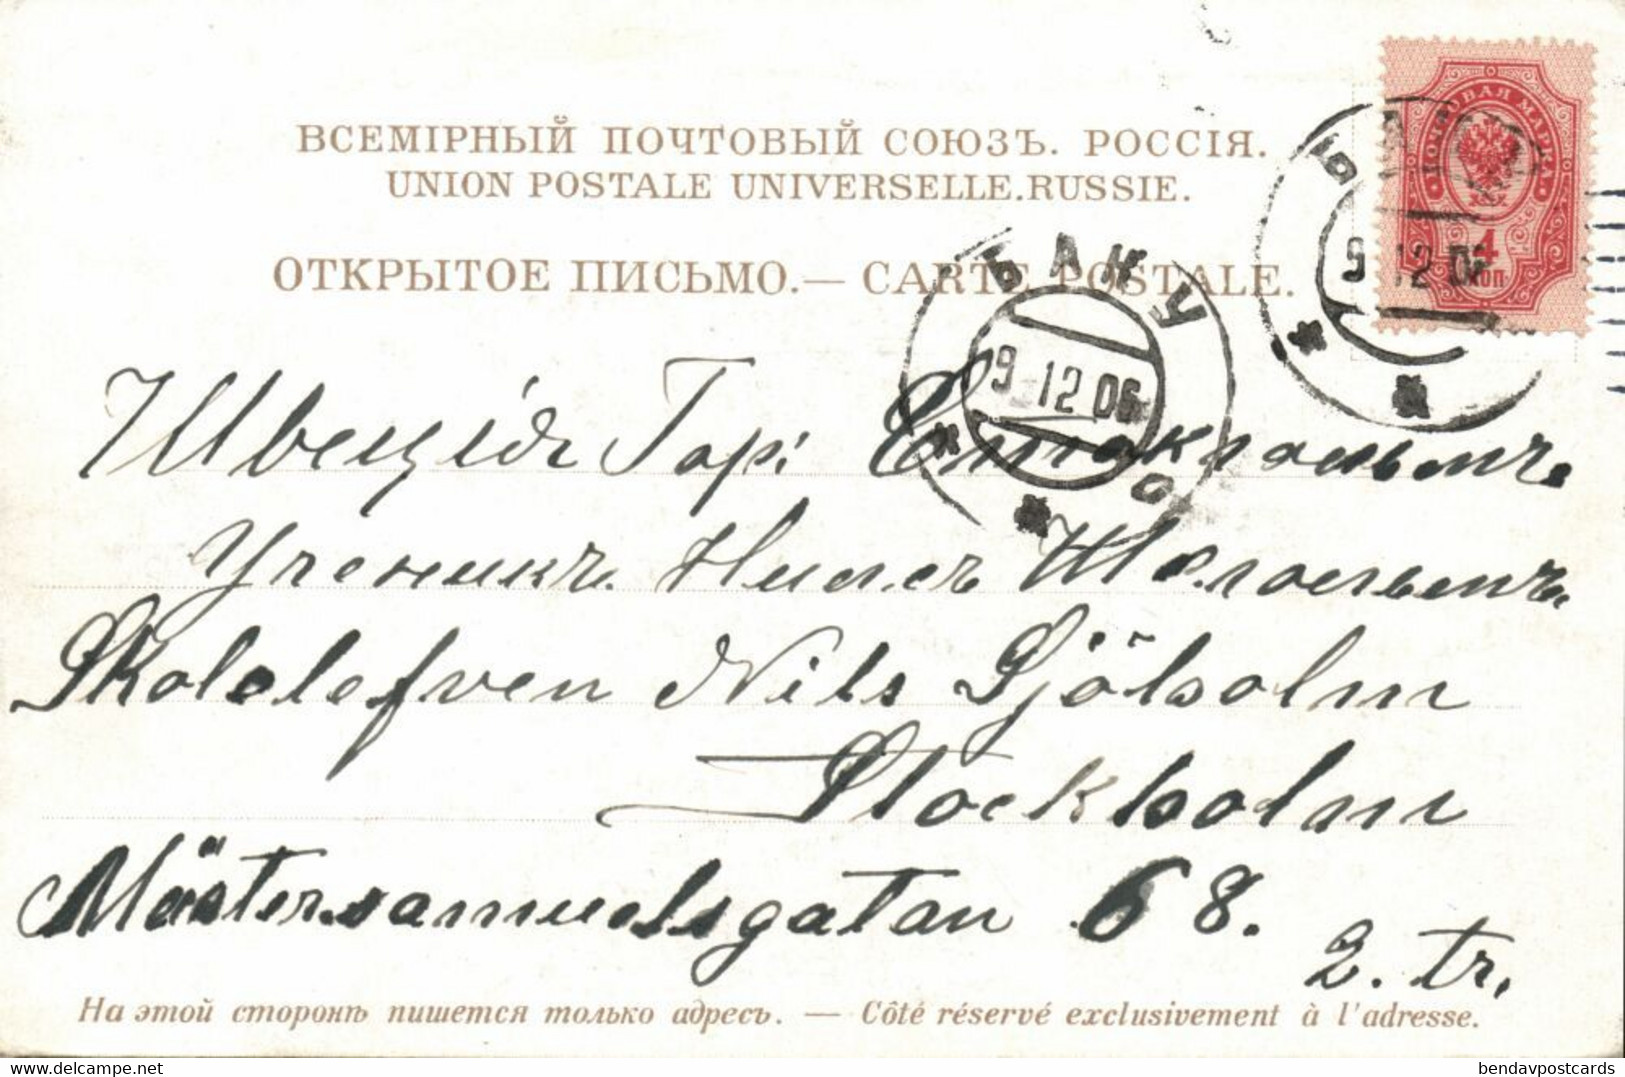 ВСЕМІРНЫЙ ПОЧТОВЫЙ СОЮЗЪ. РОССІЯ.
UNION POSTALE UNIVERSELLE.RUSSIE.
ОТКРЫТОЕ ПИСЬМО.— CARTE POSTALE.
ПОЧТОВАЯ МАРКА
4
КОП
БАКУ
9 12 06
БАКУ
9 12 06
Швеція Гор: Стокгольмъ.
Ученикъ Нильсъ
Skolelefven Nils Sjöholm
Stockholm
Mästersamuelsgatan 68.
2. tr.
На этой сторонѣ пишется только адресъ. — Côté réservé exclusivement à l'adresse.
www.delcampe.net
bendavpostcards